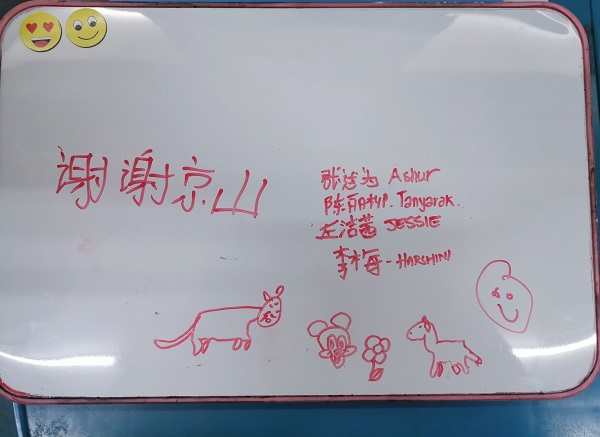 谢谢京山
张洁为 Ashur
陈 Tanyarak.
左洁茜 JESSIE
李梅 - HARSHINI